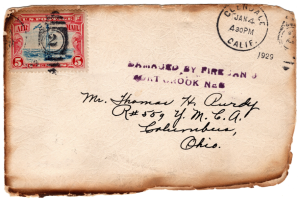 GLENDALE
JAN 4
4 30 PM
CALIF.
1929
AIR MAIL
5 5
DAMAGED BY FIRE JAN
FORT CROOK NEB
Mr. Thomas H. Purdy
R#559 Y. M. C. A.
Columbus,
Ohio.